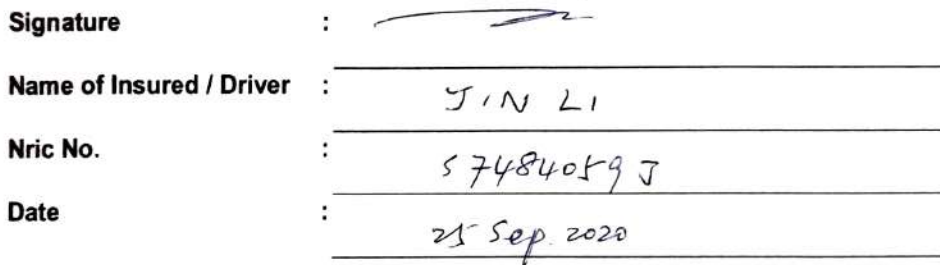 Signature :
Name of Insured / Driver : JIN LI
Nric No. : S7484059J
Date : 25 Sep. 2020